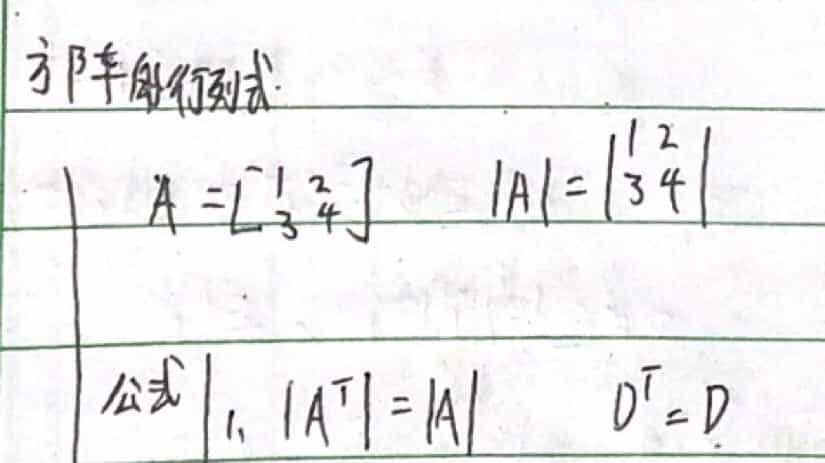 方阵的行列式.
A = [1 2
3 4] |A| = |1 2
3 4|
公式 1. |Aᵀ| = |A| Dᵀ = D